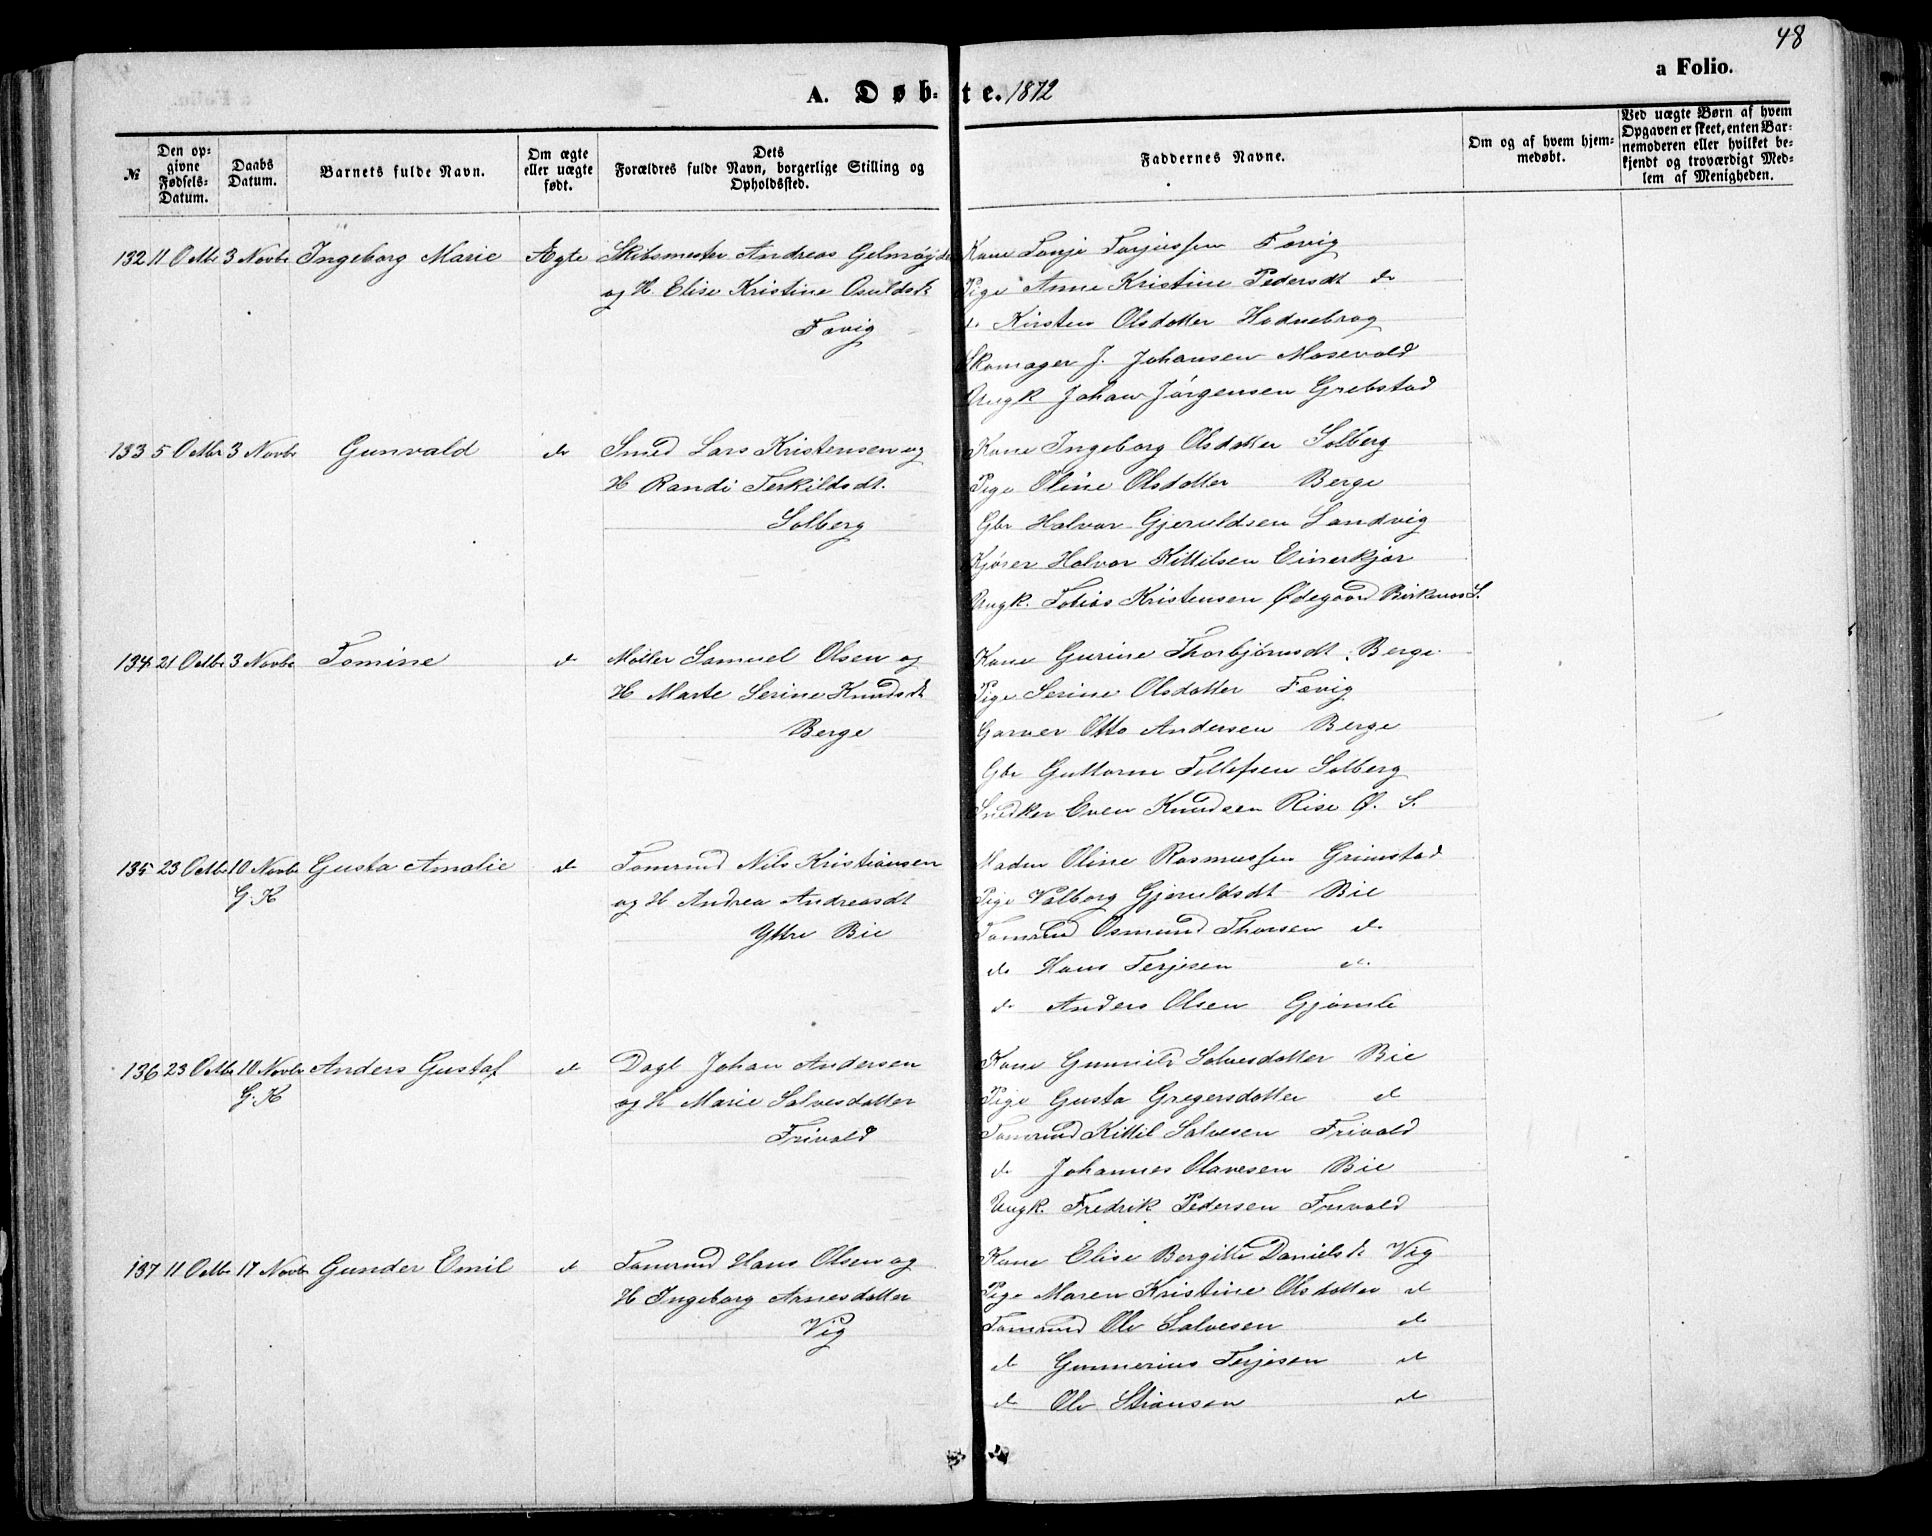 48
a Folio.
A. Døb-te. 1872
№
Den opgivne Fødsels-Datum.
Daabs Datum.
Barnets fulde Navn.
Om ægte eller uægte født.
Dets Forældres fulde Navn, borgerlige Stilling og Opholdssted.
Faddernes Navne.
Om og af hvem hjemmedøbt.
Ved uægte Børn af hvem Opgaven er skeet, enten Barnemoderen eller hvilket bekjendt og troværdigt Medlem af Menigheden.
132 11 Octbr 3 Novbr Ingeborg Marie Ægte Skibsmester Andreas Gelmøyde
og H. Elise Kristine Osuldsdt
Fævig
Kone Tonje Torjussen Fævig
Pige Anne Kristine Pedersdt do
do Kirsten Olsdatter Hodnebrog
Skomager J. Johansen Mosevold
Ungk Johan Jörgensen Grebstad
133 5 Octbr 3 Novbr Gunvald do Smed Lars Kristensen og
H Randi Terkildsdt.
Solberg
Kone Ingeborg Olsdatter Solberg
Pige Oline Olsdatter Berge
Gbr Halvor Gjeruldsen Sandvig
Kjører Halvor Kittilsen Einerkjør
Ungk. Tobias Kristensen Ødegaard Birkenes S.
134 21 Octbr 3 Novbr Tomine do Møller Samuel Olsen og
H Marte Serine Knudsdt
Berge
Kone Gurine Thorbjørnsdt. Berge
Pige Serine Olsdatter Fævig
Garver Otto Andersen Berge
Gbr Guttorm Tellefsen Solberg
Snedker Even Knudsen Rise Ø. S.
135 23 Octbr 10 Novbr Gusta Amalie do Tømrmd Nils Kristiansen
G. K
og H Andrea Andreasdt
Yttre Bie
Madm Oline Rasmussen Grimstad
Pige Valborg Gjeruldsdt Bie
Tømrmd Osmund Thorsen do
do Hans Terjesen do
do Anders Olsen Gjömle
136 23 Octbr 10 Novbr Anders Gustaf do Dagl Johan Andersen
G. K
og H Marie Salvesdatter
Frivold
Kone Gunnild Salvesdatter Bie
Pige Gusta Gregersdatter do
Tømrmd Kittil Salvesen Frivold
do Johannes Olavesen Bie
Ungk. Fredrik Pedersen Frivold
137 11 Octbr 17 Novbr Gunder Emil do Tømrmd Hans Olsen og
H Ingeborg Arnesdatter
Vig
Kone Elise Bergitte Danielsdt Vig
Pige Maren Kristine Olsdatter do
Tømrmd Ole Salvesen do
do Gunnerius Terjesen do
do Ole Stiansen do